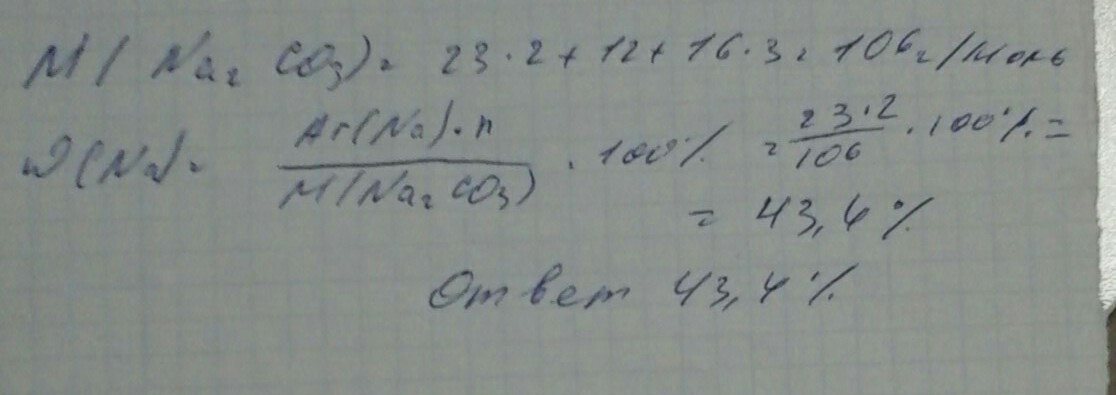 M(Na₂CO₃) = 23·2+12+16·3 = 106 г/моль
ω(Na) = Ar(Na)·n / M(Na₂CO₃) · 100% = 23·2 / 106 · 100% =
= 43,4%
Ответ 43,4%